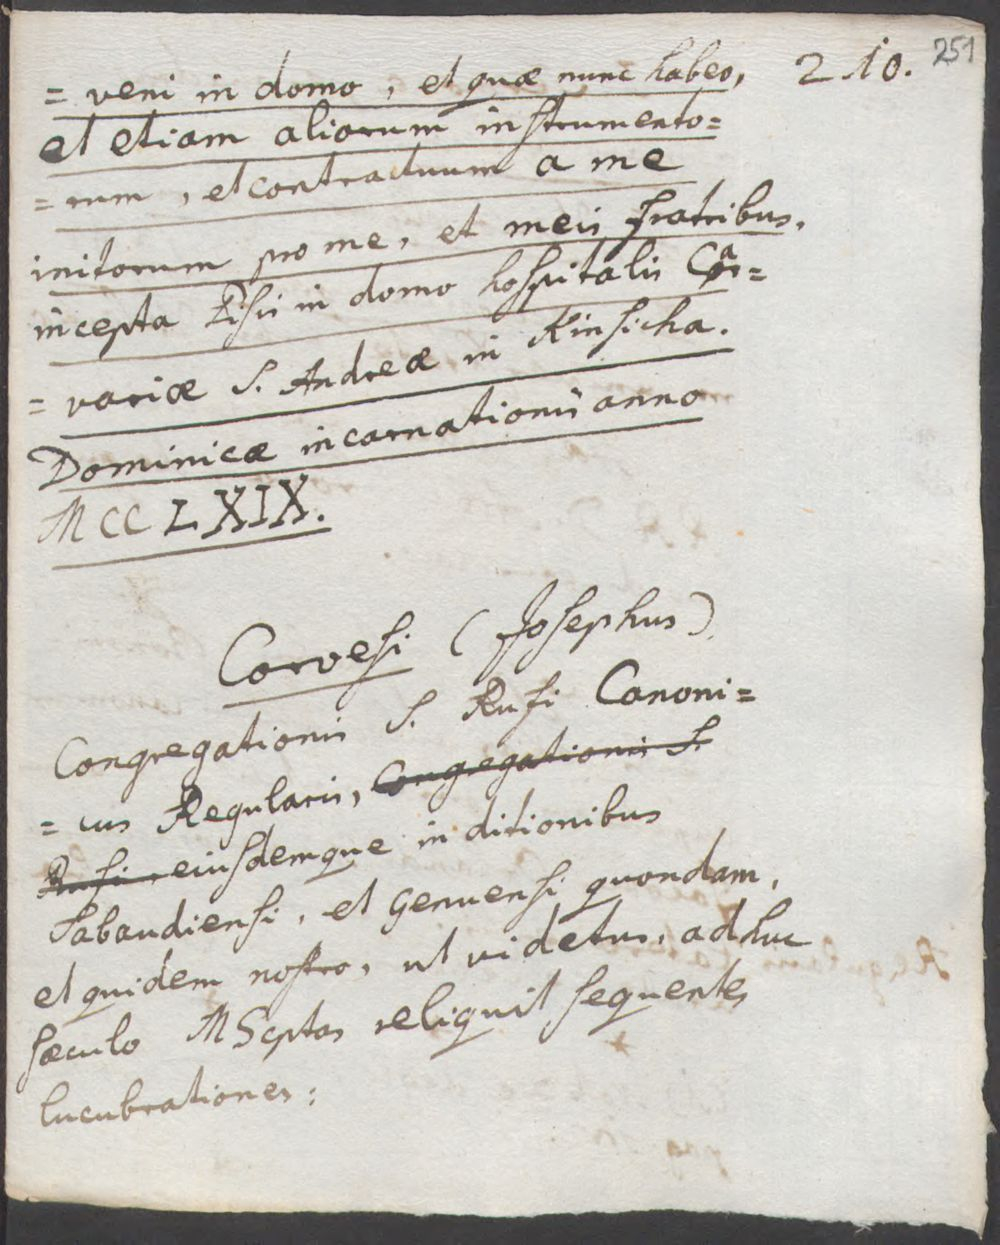 251
210.
= veni in domo, et quæ nunc habeo,
et etiam aliorum instrumento=
= rum, et contractuum a me
initorum pro me, et meis fratribus,
incepta Pisis in domo hospitalis Ca=
= variæ S. Andreæ in Kinsicha.
Dominicæ incarnationis anno
MCCLXIX.
Corvesi (Josephus)
Congregationis S. Rufi Canoni=
= cus Regularis, Congregationis S.
Rufi eiusdemque in ditionibus
Sabaudiensi, et Genuensi quondam,
et quidem nostro, ut videtur, adhuc
sæculo MSSptas reliquit sequentes
lucubrationes: